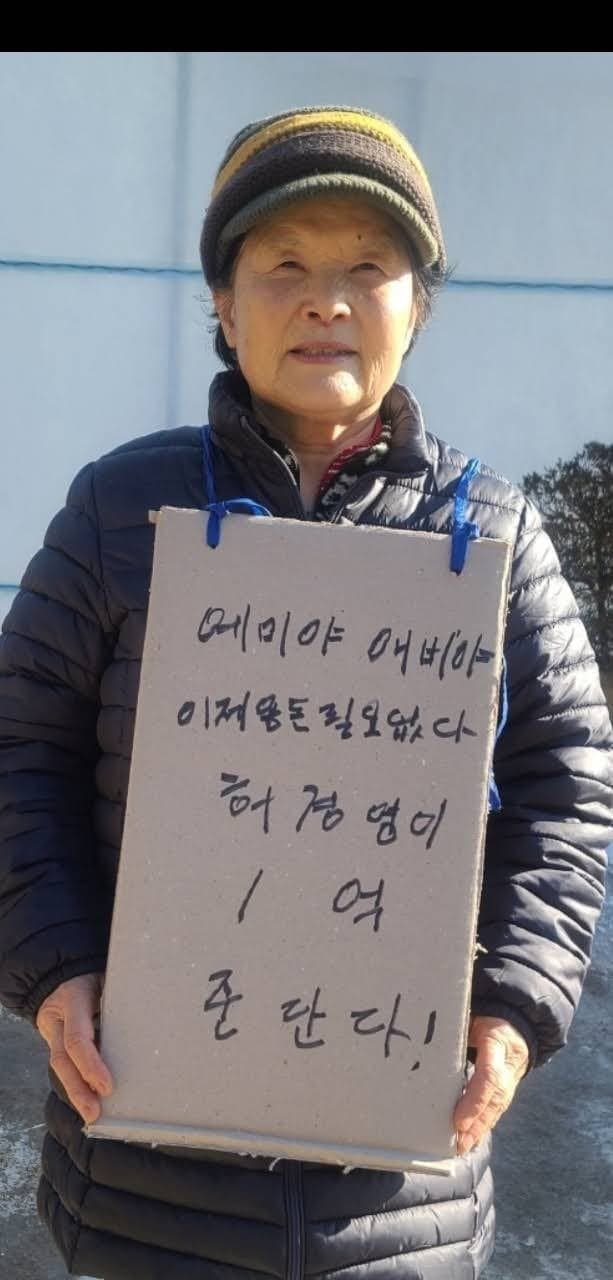 에미야 애비야
이제용돈필요없다
허경영이
1 억
준단다!